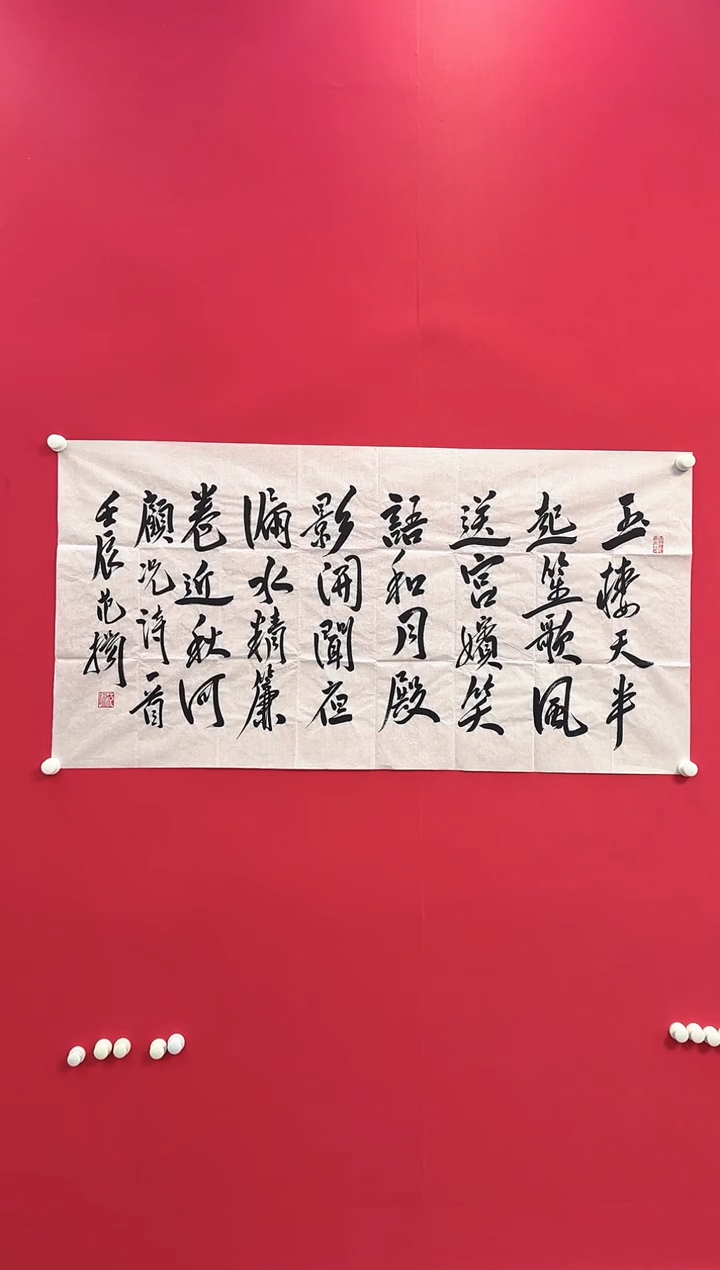 玉樓天半
起笙歌風
送宮嬪笑
語和月殿
影開聞夜
漏水精簾
卷近秋河
顧況詩一首
壬辰范